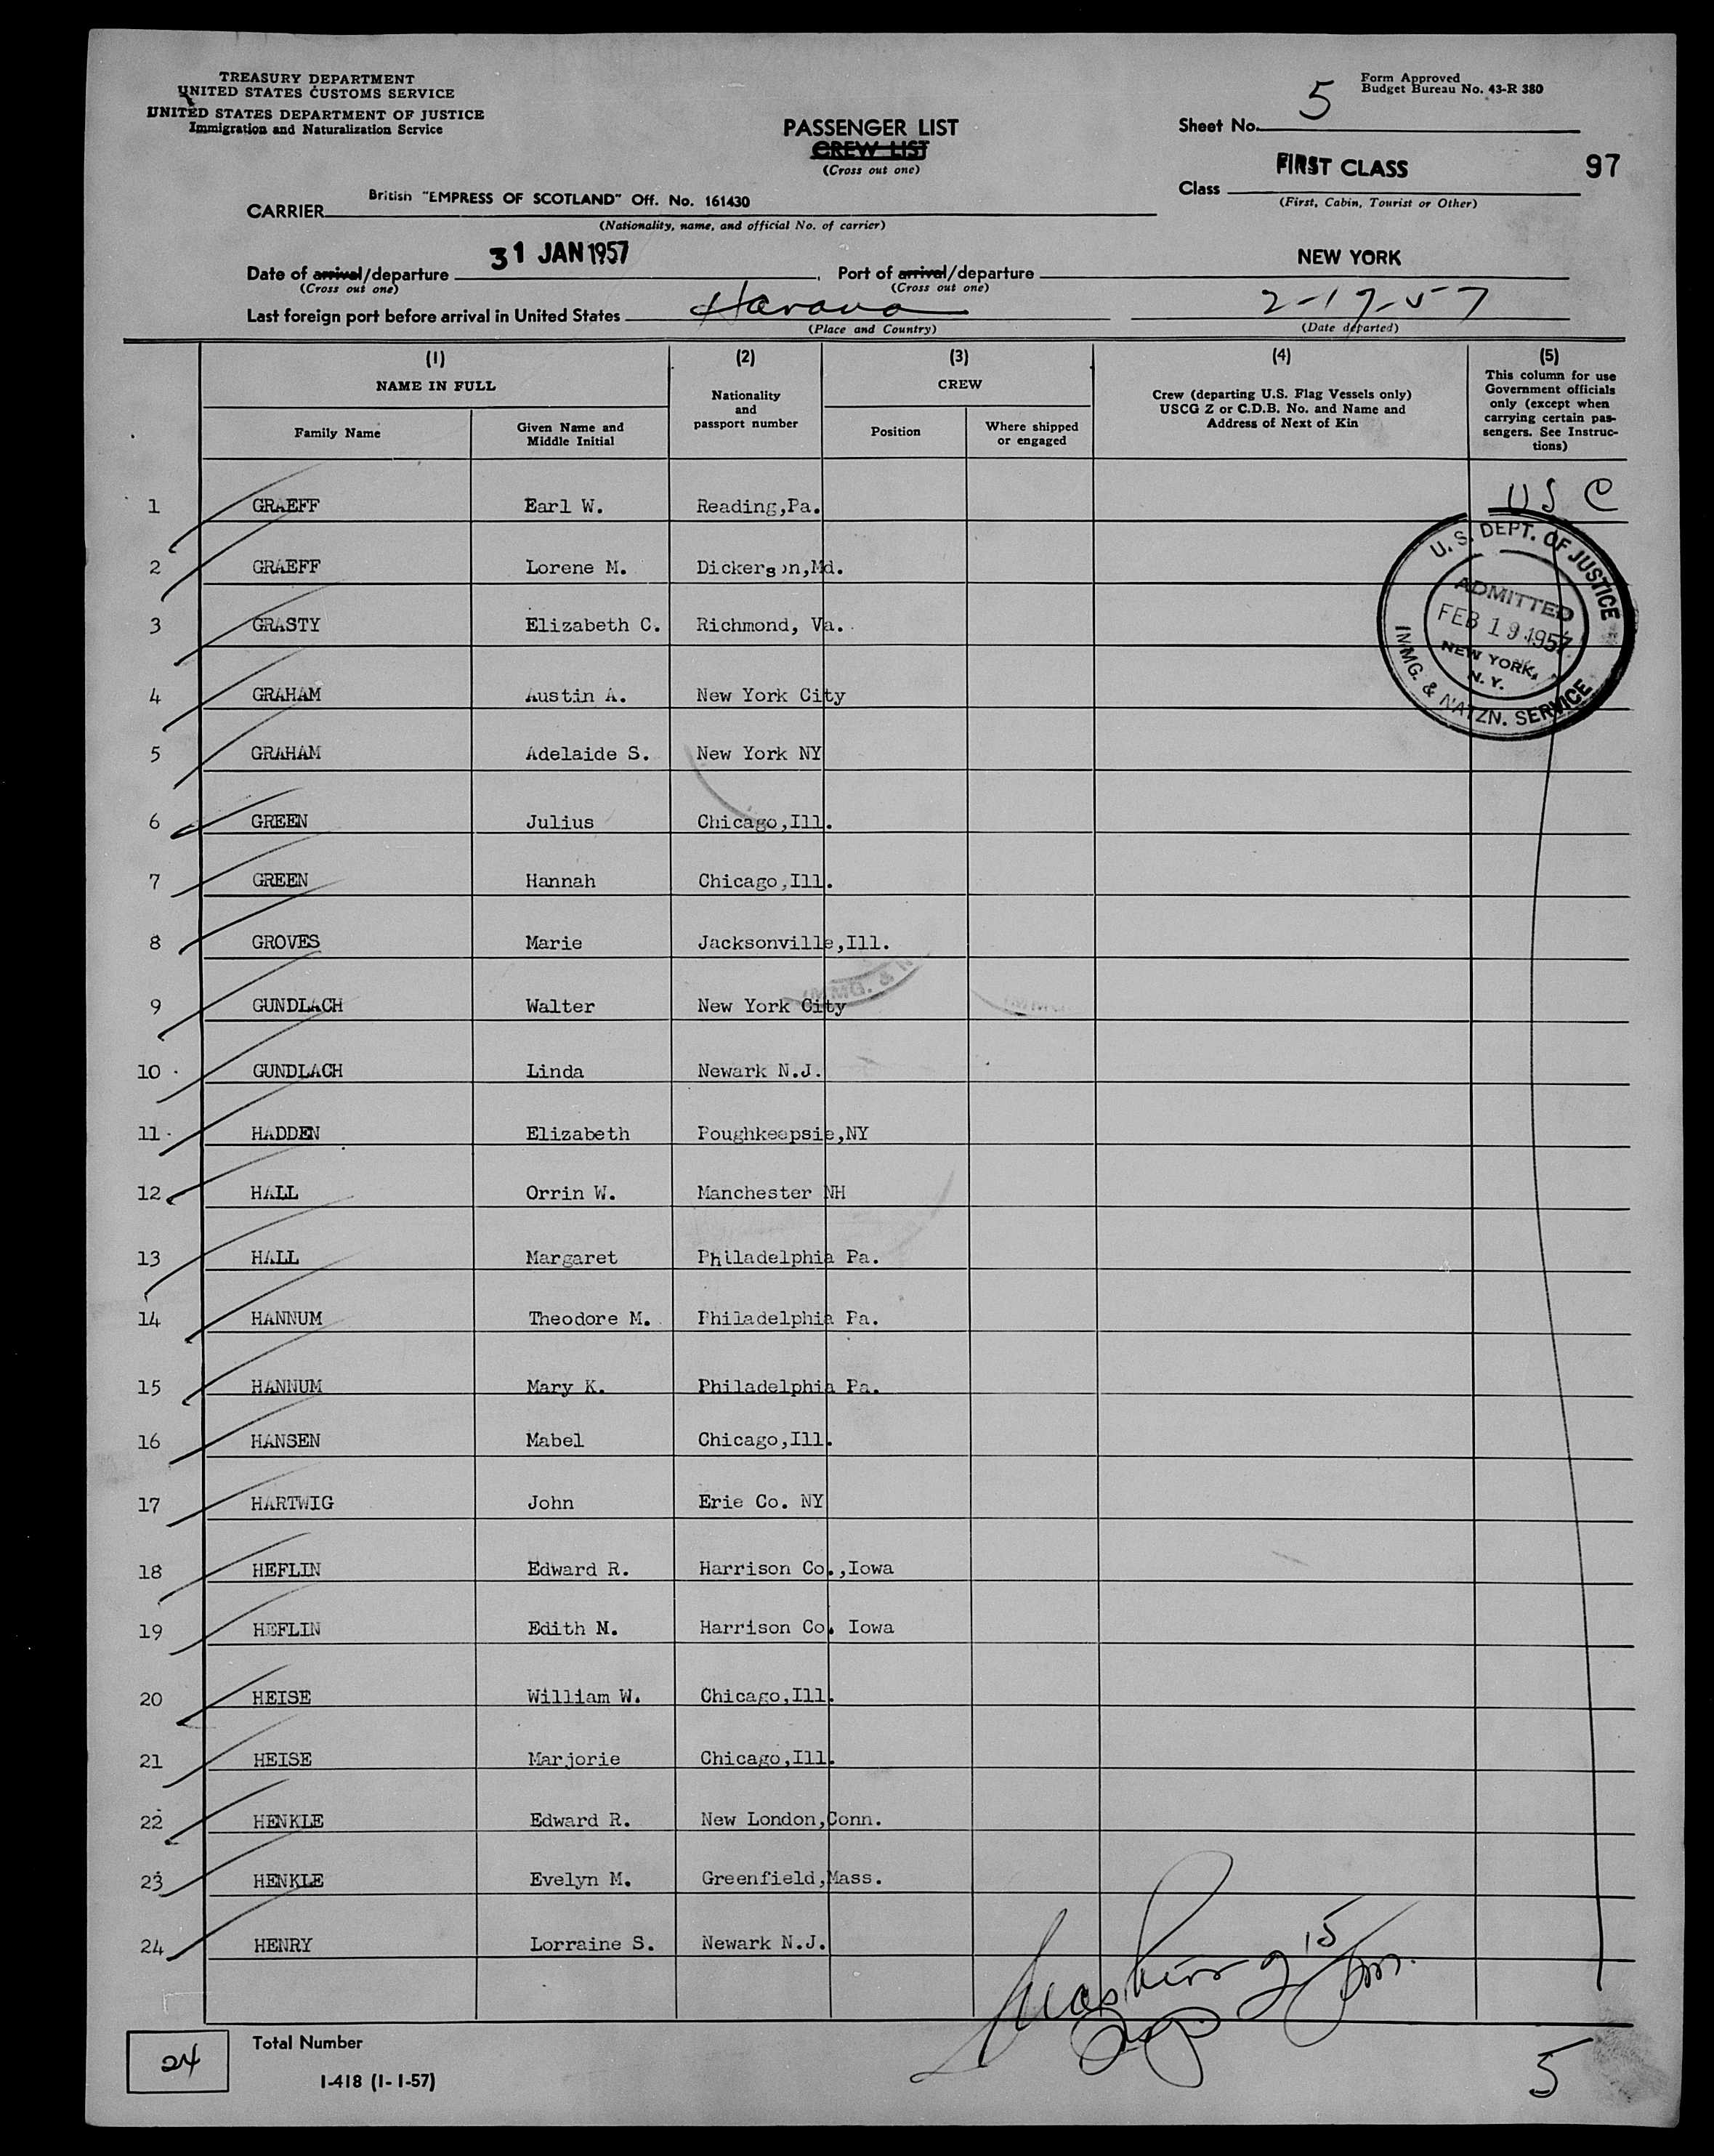 TREASURY DEPARTMENT
UNITED STATES CUSTOMS SERVICE
UNITED STATES DEPARTMENT OF JUSTICE
Immigration and Naturalization Service
Form Approved
Budget Bureau No. 43-R 380
PASSENGER LIST
CREW LIST
(Cross out one)
Sheet No. 5
FIRST CLASS 97
Class
(First, Cabin, Tourist or Other)
CARRIER British "EMPRESS OF SCOTLAND" Off. No. 161430
(Nationality, name, and official No. of carrier)
Date of arrival/departure 31 JAN 1957 Port of arrival/departure NEW YORK
(Cross out one) (Cross out one)
Last foreign port before arrival in United States Havana 2-17-57
(Place and Country) (Date departed)
(1) (2) (3) (4) (5)
NAME IN FULL
Family Name
Given Name and
Middle Initial
Nationality
and
passport number
CREW
Position
Where shipped
or engaged
Crew (departing U.S. Flag Vessels only)
USCG Z or C.D.B. No. and Name and
Address of Next of Kin
This column for use
Government officials
only (except when
carrying certain pas-
sengers. See Instruc-
tions)
1 GRAEFF Earl W. Reading,Pa. USC
2 GRAEFF Lorene M. Dickerson,Md.
3 GRASTY Elizabeth C. Richmond, Va.
4 GRAHAM Austin A. New York City
5 GRAHAM Adelaide S. New York NY
6 GREEN Julius Chicago,Ill.
7 GREEN Hannah Chicago,Ill.
8 GROVES Marie Jacksonville,Ill.
9 GUNDLACH Walter New York City
10 GUNDLACH Linda Newark N.J.
11 HADDEN Elizabeth Poughkeepsie,NY
12 HALL Orrin W. Manchester NH
13 HALL Margaret Philadelphia Pa.
14 HANNUM Theodore M. Philadelphia Pa.
15 HANNUM Mary K. Philadelphia Pa.
16 HANSEN Mabel Chicago,Ill.
17 HARTWIG John Erie Co. NY
18 HEFLIN Edward R. Harrison Co.,Iowa
19 HEFLIN Edith M. Harrison Co. Iowa
20 HEISE William W. Chicago,Ill.
21 HEISE Marjorie Chicago,Ill.
22 HENKLE Edward R. New London,Conn.
23 HENKLE Evelyn M. Greenfield,Mass.
24 HENRY Lorraine S. Newark N.J.
U. S. DEPT. OF JUSTICE
ADMITTED
FEB 19 1957
NEW YORK,
N. Y.
IMMG. & NATZN. SERVICE
IMMG. & N
15
24 Total Number
I-418 (1-1-57)
5